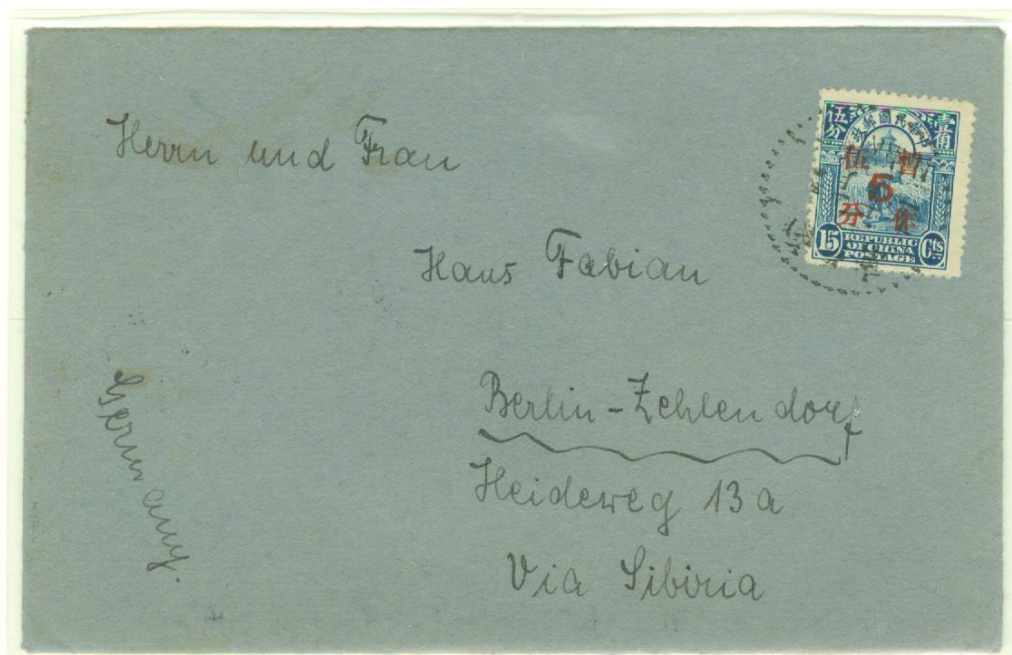 Herrn und Frau
Hans Fabian
Berlin-Zehlendorf
Heideweg 13a
Via Sibiria
Germany.
中華民國郵政
壹角
伍分
暫作
伍分
5
15 Cts
REPUBLIC
OF CHINA
POSTAGE